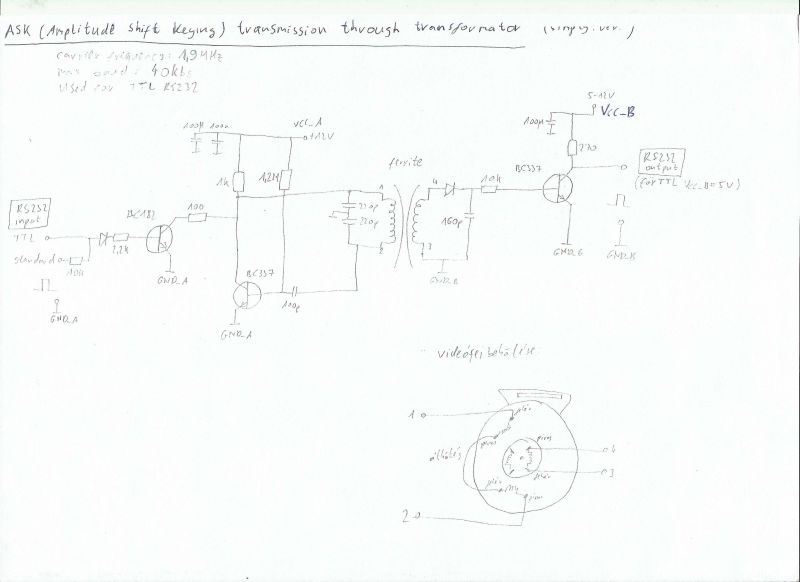 ASK (Amplitude Shift Keying) transmission through transformator (simpl. ver.)
carrier frequency: 1,9MHz
max baud: 40kbs
Used for TTL RS232
5-12V
VCC_B
100µ
270
VCC_A
+12V
100µ 100n
1k
1,2M
ferrite
1
220p
220p
2
4
160p
3
10k
BC337
RS232 output
(for TTL VCC_B=5V)
GND_B
GND_B
GND_B
RS232 input
TTL
standard
10k
2,2k
BC182
100
GND_A
GND_A
BC337
100p
GND_A
1
2
3
4
piros
piros